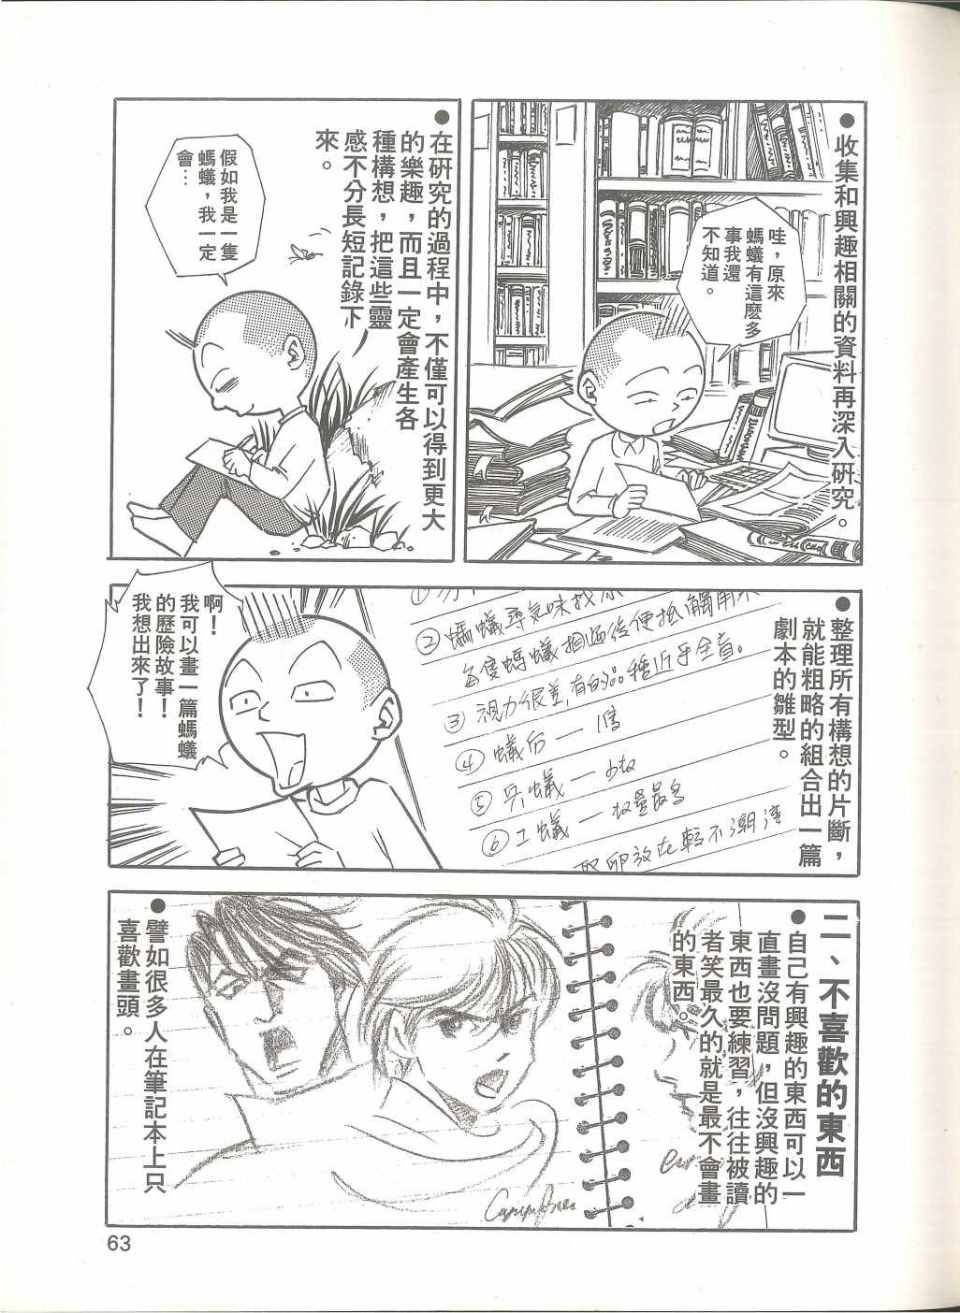 ●收集和興趣相關的資料再深入研究。
哇，原來
螞蟻有這麼多
事我還
不知道。
●在研究的過程中，不僅可以得到更大
的樂趣，而且一定會產生各
種構想，把這些靈
感不分長短記錄下
來。
假如我是一隻
螞蟻，我一定
會…
●整理所有構想的片斷，
就能粗略的組合出一篇
劇本的雛型。
②螞蟻尋氣味找
每隻螞蟻相遇後便抵觸角
③視力很差，有的種近乎全盲。
④蟻后一1隻
⑤兵蟻一少數
⑥工蟻一數量最多
取卵放在較不潮溼
啊！
我可以畫一篇螞蟻
的歷險故事！
我想出來了！
二、不喜歡的東西
●自己有興趣的東西可以一
直畫沒問題，但沒興趣的
東西也要練習，往往被讀
者笑最久的就是最不會畫
的東西。
●譬如很多人在筆記本上只
喜歡畫頭。
63